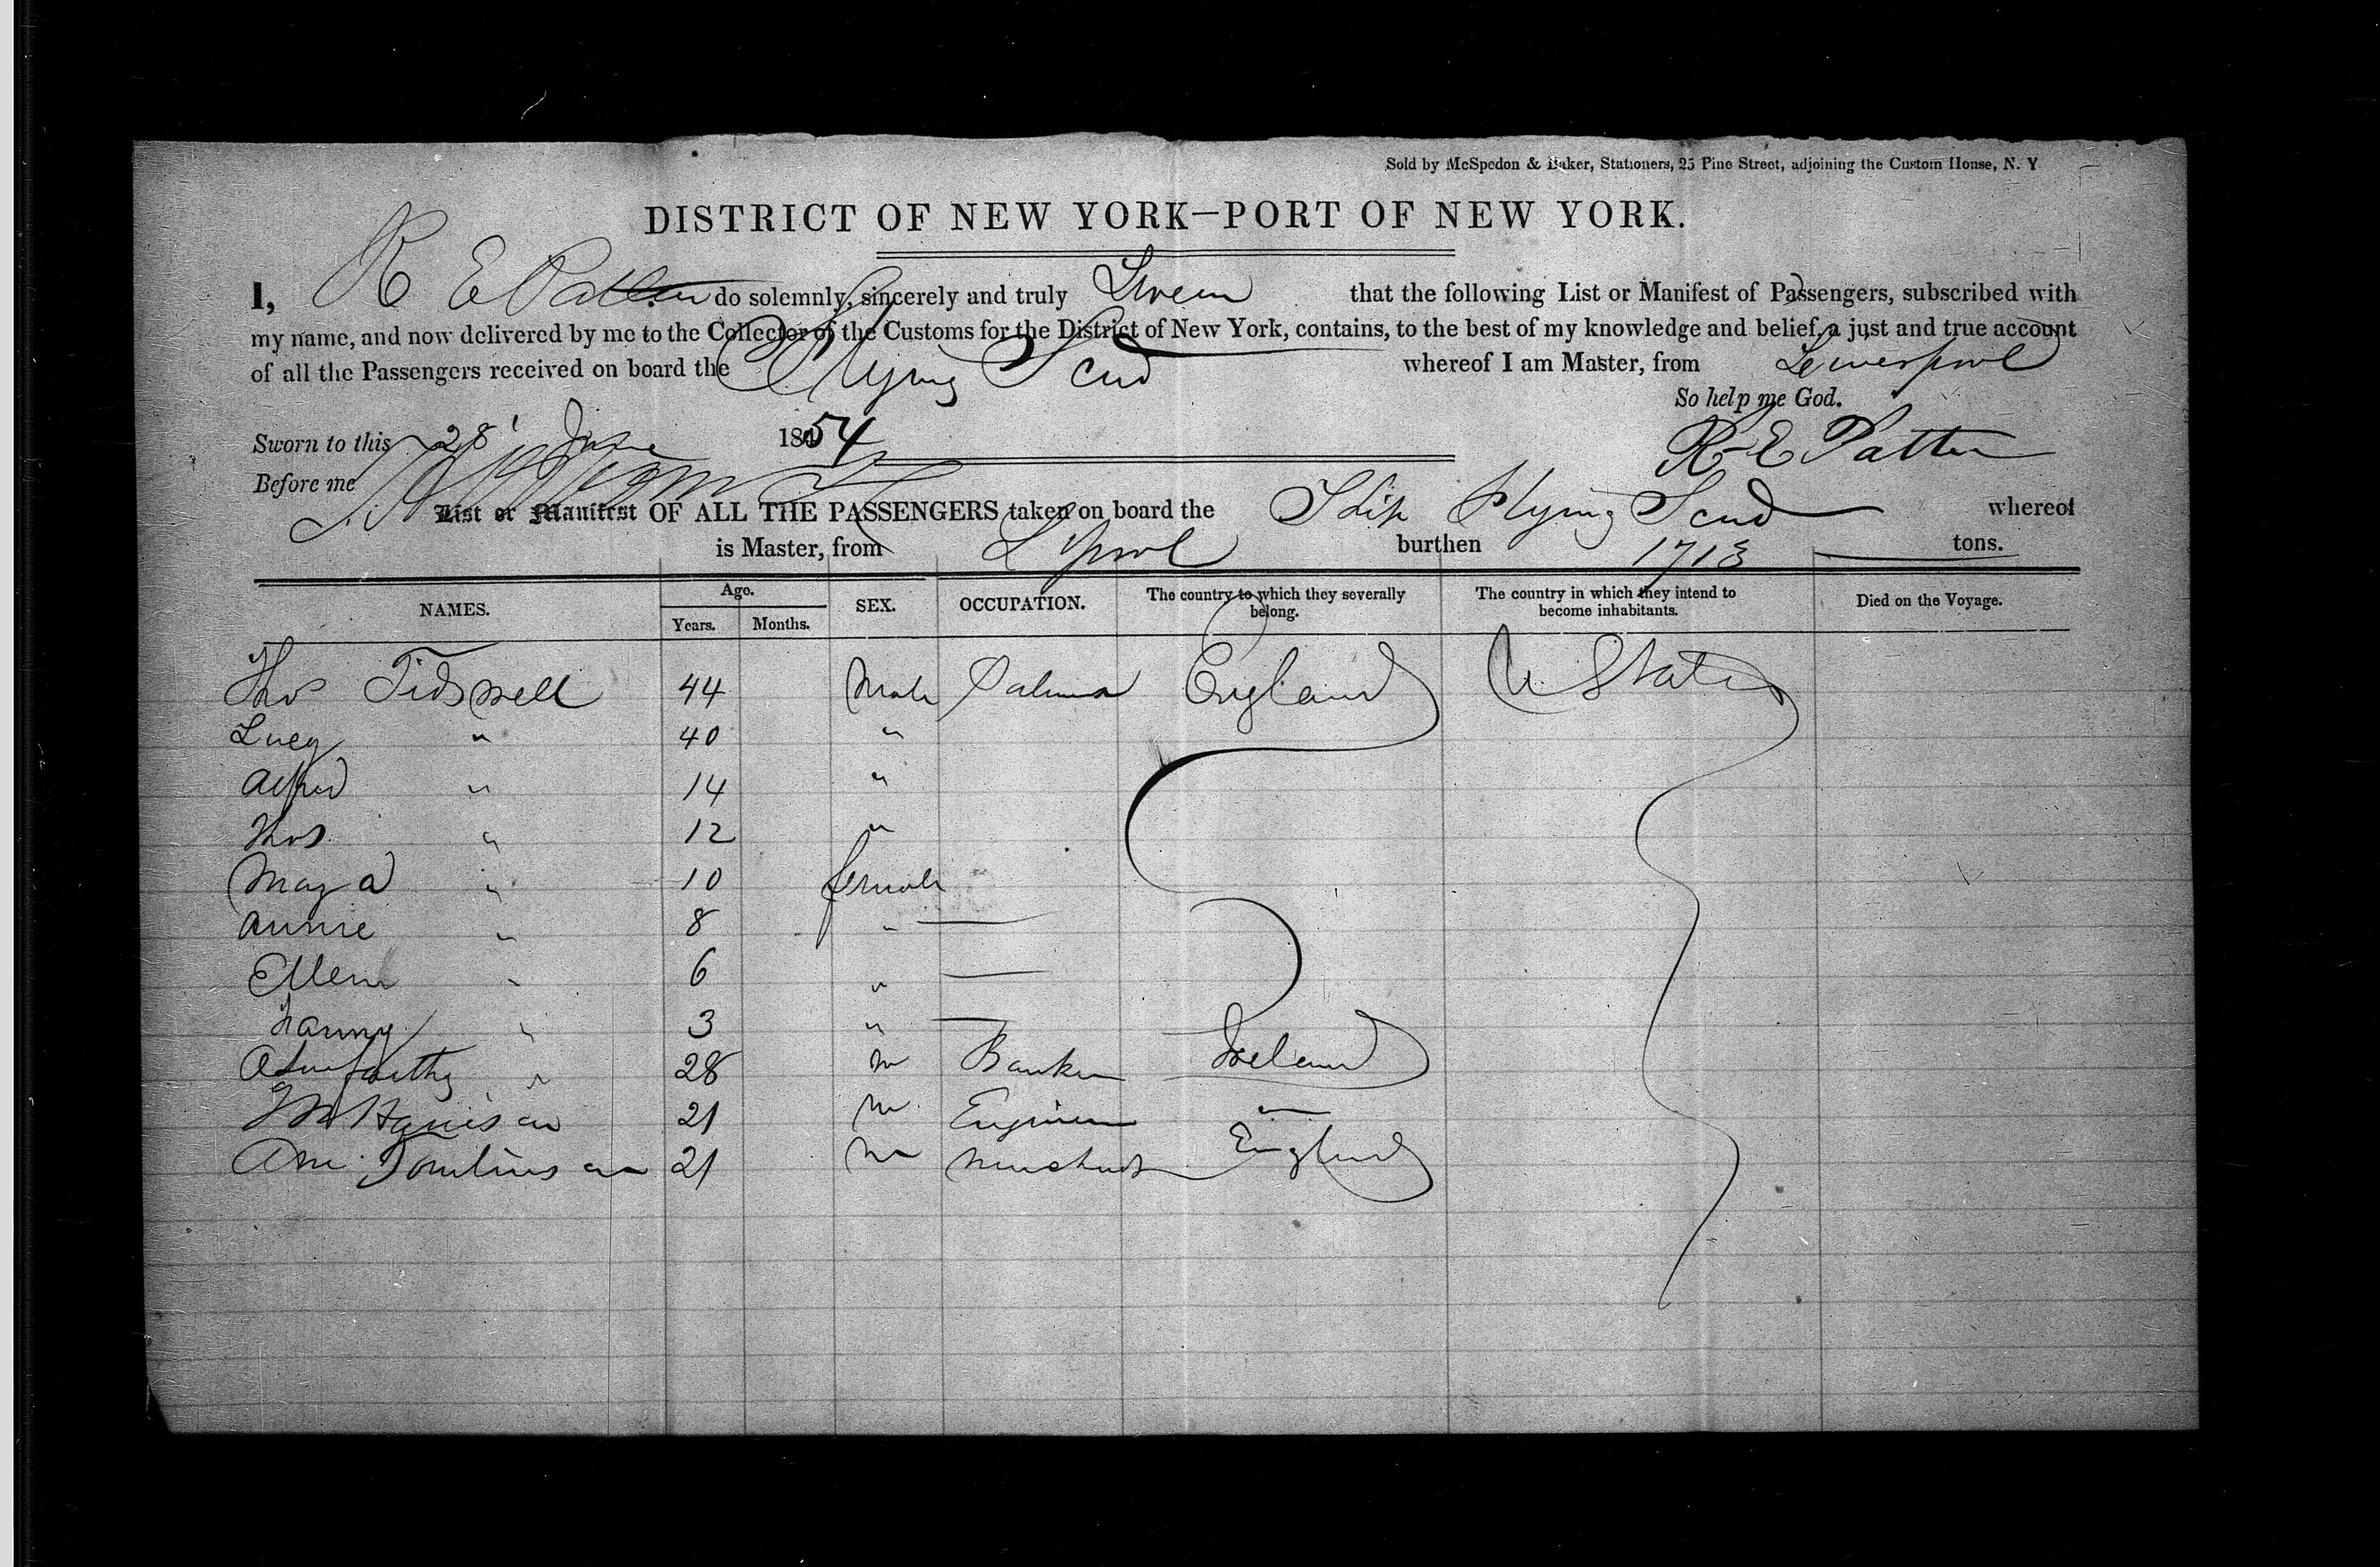 Sold by McSpedon & Baker, Stationers, 25 Pine Street, adjoining the Custom House, N. Y
DISTRICT OF NEW YORK—PORT OF NEW YORK.
I, R E Patten do solemnly, sincerely and truly Swear that the following List or Manifest of Passengers, subscribed with
my name, and now delivered by me to the Collector of the Customs for the District of New York, contains, to the best of my knowledge and belief, a just and true account
of all the Passengers received on board the Flying Scud whereof I am Master, from Liverpool
So help me God.
Sworn to this 28 June 1854 R E Patten
Before me
List or Manifest OF ALL THE PASSENGERS taken on board the Ship Flying Scud whereof
is Master, from L'pool burthen 1713 tons.
NAMES. Age. Years. Months. SEX. OCCUPATION. The country to which they severally belong. The country in which they intend to become inhabitants. Died on the Voyage.
Thos Tidswell 44 Male England U States
Lucy " 40 "
Alfred " 14 "
Thos " 12 "
Mary A " 10 female
Annie " 8 "
Ellen " 6 "
Fanny " 3 "
" 28 m Banker Ireland
Harrison 21 m Engineer "
Tomlinson 21 m England